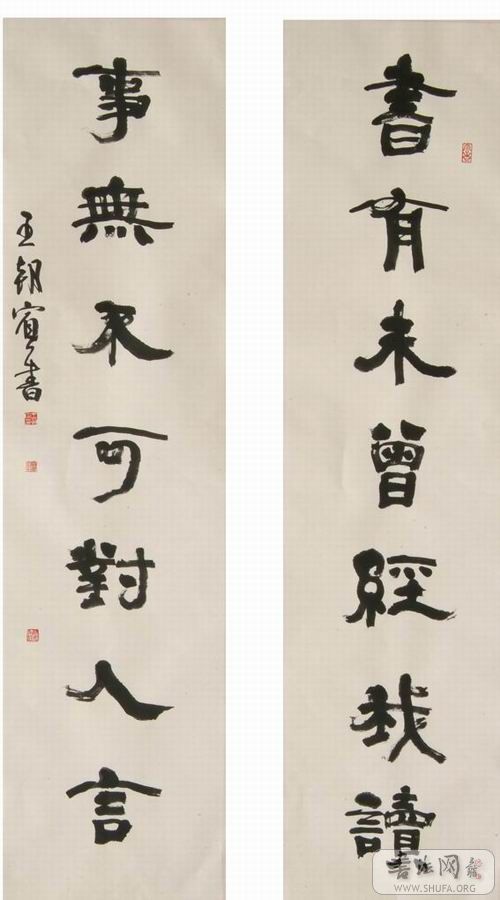 書有未曾經我讀
事無不可對人言
王朝賓書
書法网
WWW.SHUFA.ORG